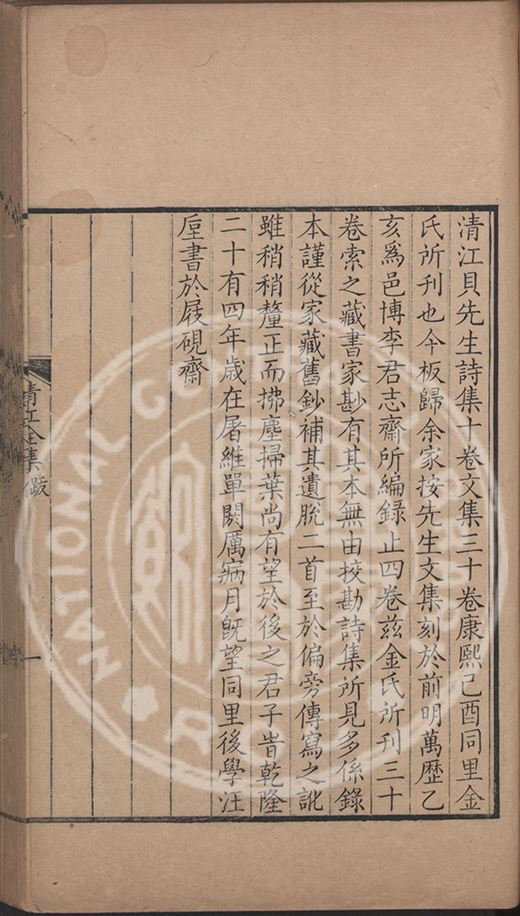 清江貝先生詩集十卷文集三十卷康熙己酉同里金
氏所刊也今板歸余家按先生文集刻於前明萬歷乙
亥爲邑博李君志齋所編錄止四卷兹金氏所刊三十
卷索之藏書家尠有其本無由挍勘詩集所見多係錄
本謹從家藏舊鈔補其遺脫二首至於偏旁傳寫之訛
雖稍稍釐正而拂塵掃葉尚有望於後之君子旹乾隆
二十有四年歲在屠維單閼厲病月旣望同里後學汪
垕書於屐硯齋
清江全集 跋
一
NATIONAL CENTRAL